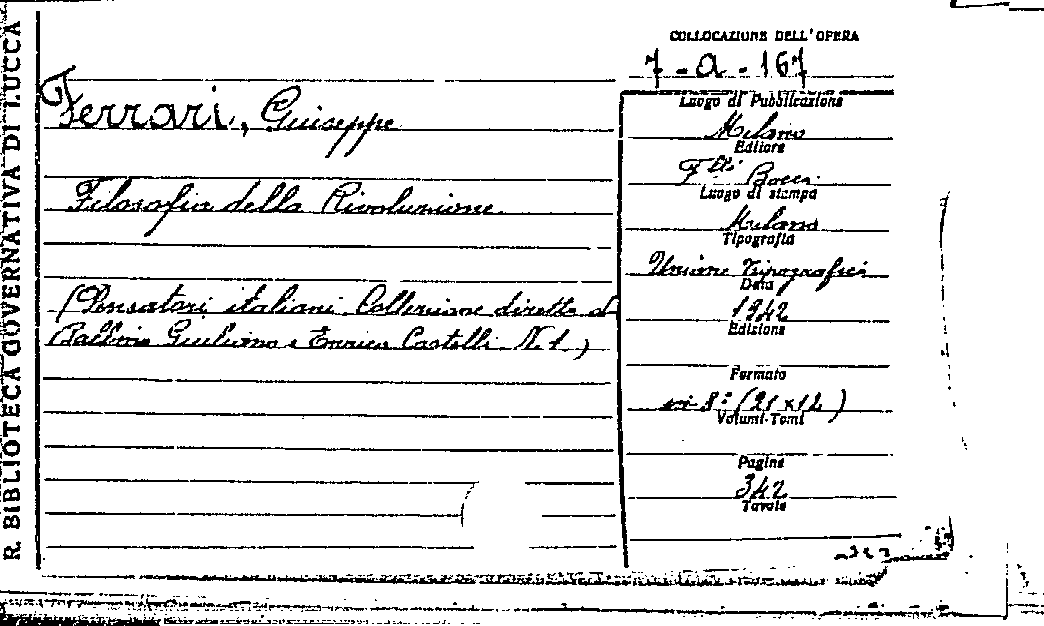 R. BIBLIOTECA GOVERNATIVA DI LUCCA
COLLOCAZIONE DELL'OPERA
7 - a - 167
Ferrari, Giuseppe
Filosofia della Rivoluzione.
(Pensatori italiani Collezione diretta d
Balbino Giuliano e Enrico Castelli N. 1.)
Luogo di Pubblicazione
Milano
Editore
F.lli Bocca
Luogo di stampa
Milano
Tipografia
Unione Tipografica
Data
1942
Edizione
Formato
in 8° (21 x 12)
Volumi-Tomi
Pagine
342
Tavole